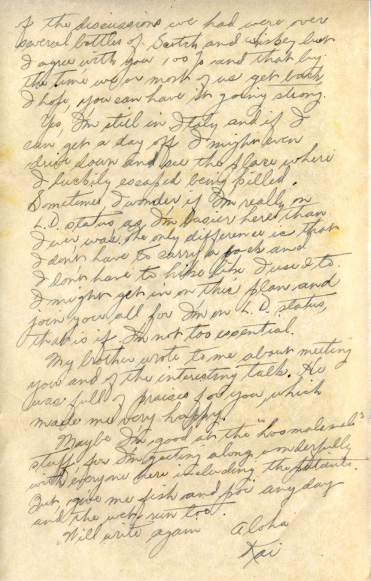 of the discussions we had were over
several bottles of Scotch and whiskey but
I agree with you 100% and that by
the time we or most of us get back
I hope you can have it going strong.
Yes, I'm still in Italy and if I
can get a day off I might even
drive down and see the place where
I luckily escaped being killed.
Sometimes I wonder if I'm really on
L.D. status as I'm busier here than
I ever was, the only difference is that
I don't have to carry a pack and
I don't have to hike like I used to.
I might get in on this plan and
join you all for I'm on L.D. status,
that is if I'm not too essential.
My brother wrote to me about meeting
you and of the interesting talk. He
was full of praises for you which
made me very happy.
Maybe I'm good at the "hoomalimali"
stuff for I'm getting along wonderfully
with everyone here including the patients.
But give me fish and poi any day
and the run too.
Will write again Aloha
Kai